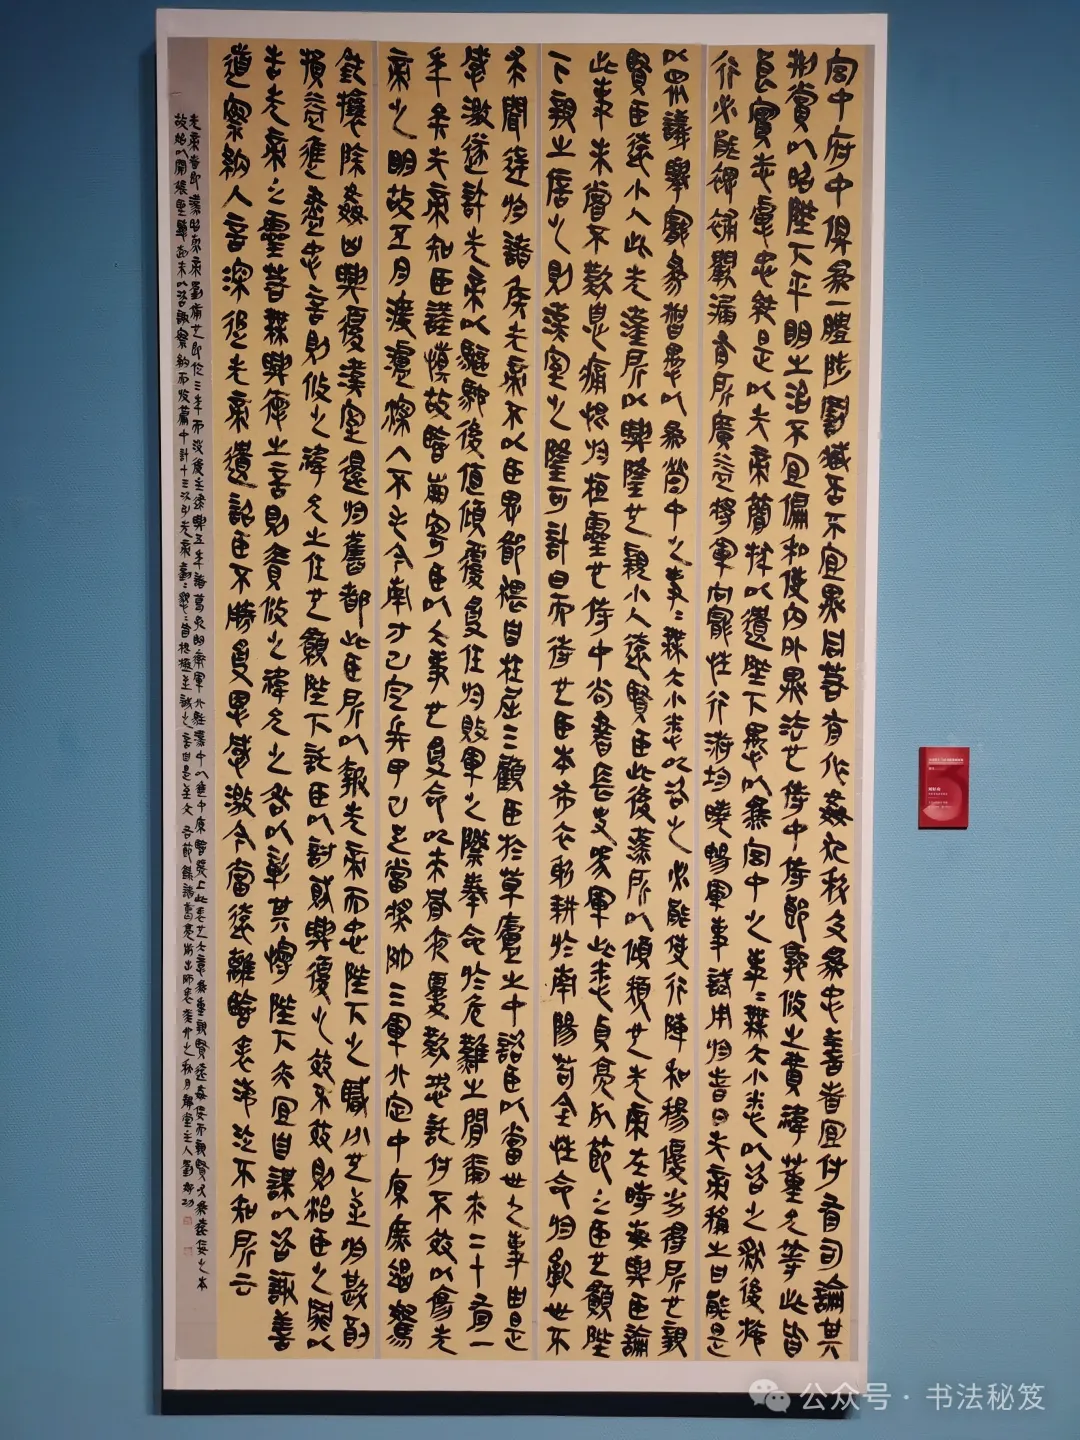 宮中府中俱為一體陟罰臧否不宜異同若有作姦犯科及為忠善者宜付有司論其
刑賞以昭陛下平明之治不宜偏私使內外異法也侍中侍郎郭攸之費禕董允等此皆
良實志慮忠純是以先帝簡拔以遺陛下愚以為宮中之事〻無大小悉以咨之然後施
行必能裨補闕漏有所廣益將軍向寵性行淑均曉暢軍事試用於昔日先帝稱之曰能是
以眾議舉寵為督愚以為營中之事〻無大小悉以咨之必能使行陣和穆優劣得所也親
賢臣遠小人此先漢所以興隆也親小人遠賢臣此後漢所以傾頹也先帝在時每與臣論
此事未嘗不歎息痛恨於桓靈也侍中尚書長史參軍此悉貞亮死節之臣也願陛
下親之信之則漢室之隆可計日而待也臣本布衣躬耕於南陽苟全性命於亂世不
求聞達於諸侯先帝不以臣卑鄙猥自枉屈三顧臣於草廬之中諮臣以當世之事由是
感激遂許先帝以驅馳後值傾覆受任於敗軍之際奉命於危難之間爾來二十有一
年矣先帝知臣謹慎故臨崩寄臣以大事也受命以來夙夜憂歎恐託付不效以傷先
帝之明故五月渡瀘深入不毛今南方已定兵甲已足當獎帥三軍北定中原庶竭駑
鈍攘除姦凶興復漢室還於舊都此臣所以報先帝而忠陛下之職分也至於斟酌
損益進盡忠言則攸之禕允之任也願陛下託臣以討賊興復之效不效則治臣之罪以
告先帝之靈若無興德之言則責攸之禕允之咎以彰其慢陛下亦宜自謀以咨諏善
道察納人言深追先帝遺詔臣不勝受恩感激今當遠離臨表涕泣不知所云
先帝者即漢昭烈帝劉備也即位三年而歿後主建興五年諸葛亮率軍北駐漢中以進中原臨發上此表也大意為重親賢遠姦佞而親賢又為遠佞之本
故始以開張聖聽起末以咨諏察納而收篇中計十三次引先帝勤〻懇〻皆根極至誠之言由是至文 右節錄諸葛亮前出師表癸卯之秋月堂主人劉功
公众号·书法秘笈